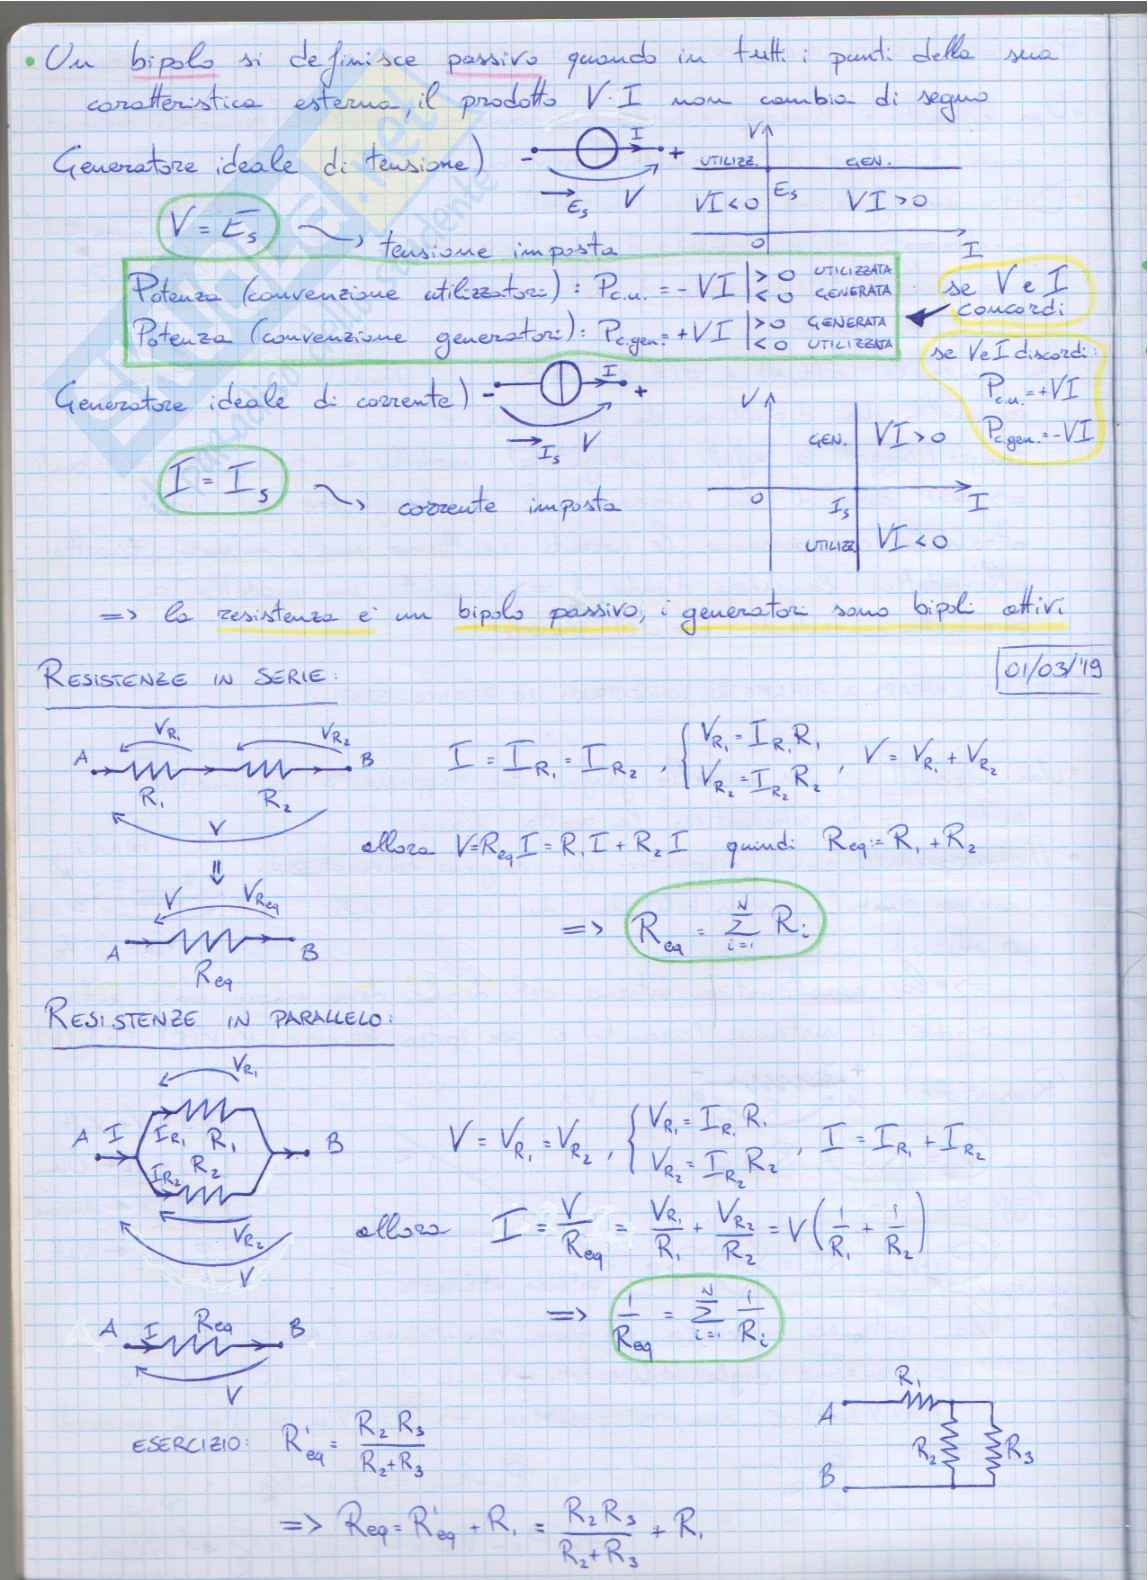 • Un bipolo si definisce passivo quando in tutti i punti della sua
caratteristica esterna, il prodotto V·I non cambia di segno
Generatore ideale di tensione)
- I +
E_s V
V
UTILIZZ. GEN.
VI<0 E_s VI>0
0 I
V = E_s tensione imposta
Potenza (convenzione utilizzatori): P_c.u. = -VI | >0 UTILIZZATA
<0 GENERATA
Potenza (convenzione generatori): P_c.gen. = +VI | >0 GENERATA
<0 UTILIZZATA
se V e I
concordi
se V e I discordi:
P_c.u. = +VI
P_c.gen. = -VI
Generatore ideale di corrente)
- I +
I_s V
V
GEN. VI>0
0 I_s I
UTILIZZ VI<0
I = I_s corrente imposta
=> la resistenza è un bipolo passivo, i generatori sono bipoli attivi
01/03/'19
RESISTENZE IN SERIE:
V_R1 V_R2
A B
R_1 R_2
V
I = I_R1 = I_R2 , { V_R1 = I_R1 R_1
V_R2 = I_R2 R_2 , V = V_R1 + V_R2
allora V=R_eq I = R_1 I + R_2 I quindi R_eq := R_1 + R_2
⇓
V V_Req
A B
R_eq
=> R_eq = Σ_{i=1}^{N} R_i
RESISTENZE IN PARALLELO:
V_R1
A I I_R1 R_1 B
I_R2 R_2
V_R2
V
V = V_R1 = V_R2 , { V_R1 = I_R1 R_1
V_R2 = I_R2 R_2 , I = I_R1 + I_R2
allora I = V/R_eq = V_R1/R_1 + V_R2/R_2 = V(1/R_1 + 1/R_2)
=> 1/R_eq = Σ_{i=1}^{N} 1/R_i
A I R_eq B
V
ESERCIZIO: R'_eq = R_2 R_3/(R_2+R_3)
=> R_eq = R'_eq + R_1 = R_2 R_3/(R_2+R_3) + R_1
R_1
A
R_2 R_3
B